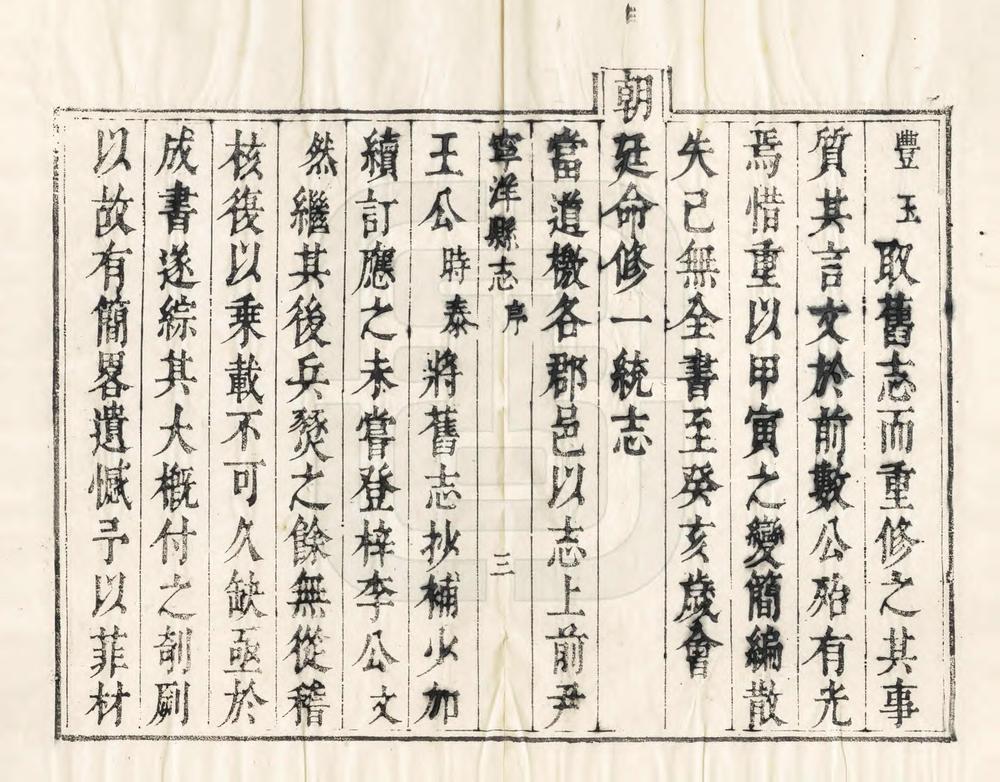 豐玉取舊志而重修之其事
質其言文於前數公殆有光
焉惜重以甲寅之變簡編散
失已無全書至癸亥歲會
朝
廷命修一統志
當道檄各郡邑以志上前尹
寧洋縣志 序 三
王公時泰將舊志抄補少加
續訂應之未嘗登梓李公文
然繼其後兵燹之餘無從稽
核復以乗載不可久缺亟於
成書遂綜其大概付之剞劂
以故有簡畧遺憾予以菲材